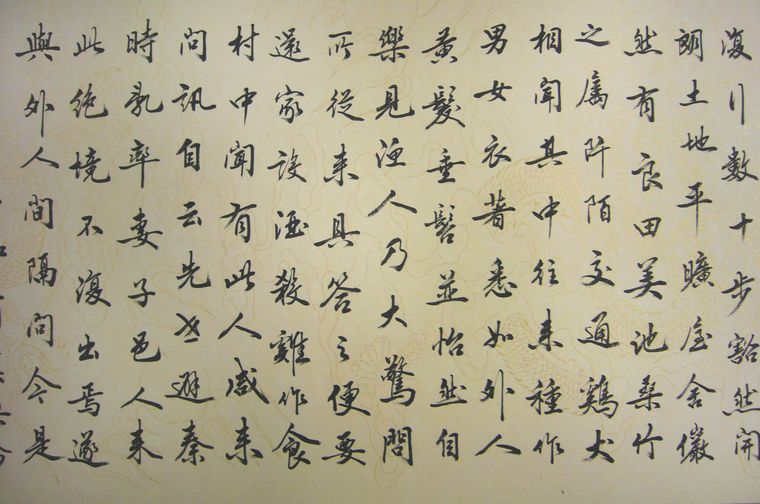 復行數十步豁然開
朗土地平曠屋舍儼
然有良田美池桑竹
之屬阡陌交通鷄犬
相聞其中往来種作
男女衣著悉如外人
黃髮垂髫並怡然自
樂見漁人乃大驚問
所從来具答之便要
還家設酒殺雞作食
村中聞有此人咸来
問訊自云先世避秦
時亂率妻子邑人来
此絶境不復出焉遂
與外人間隔問今是